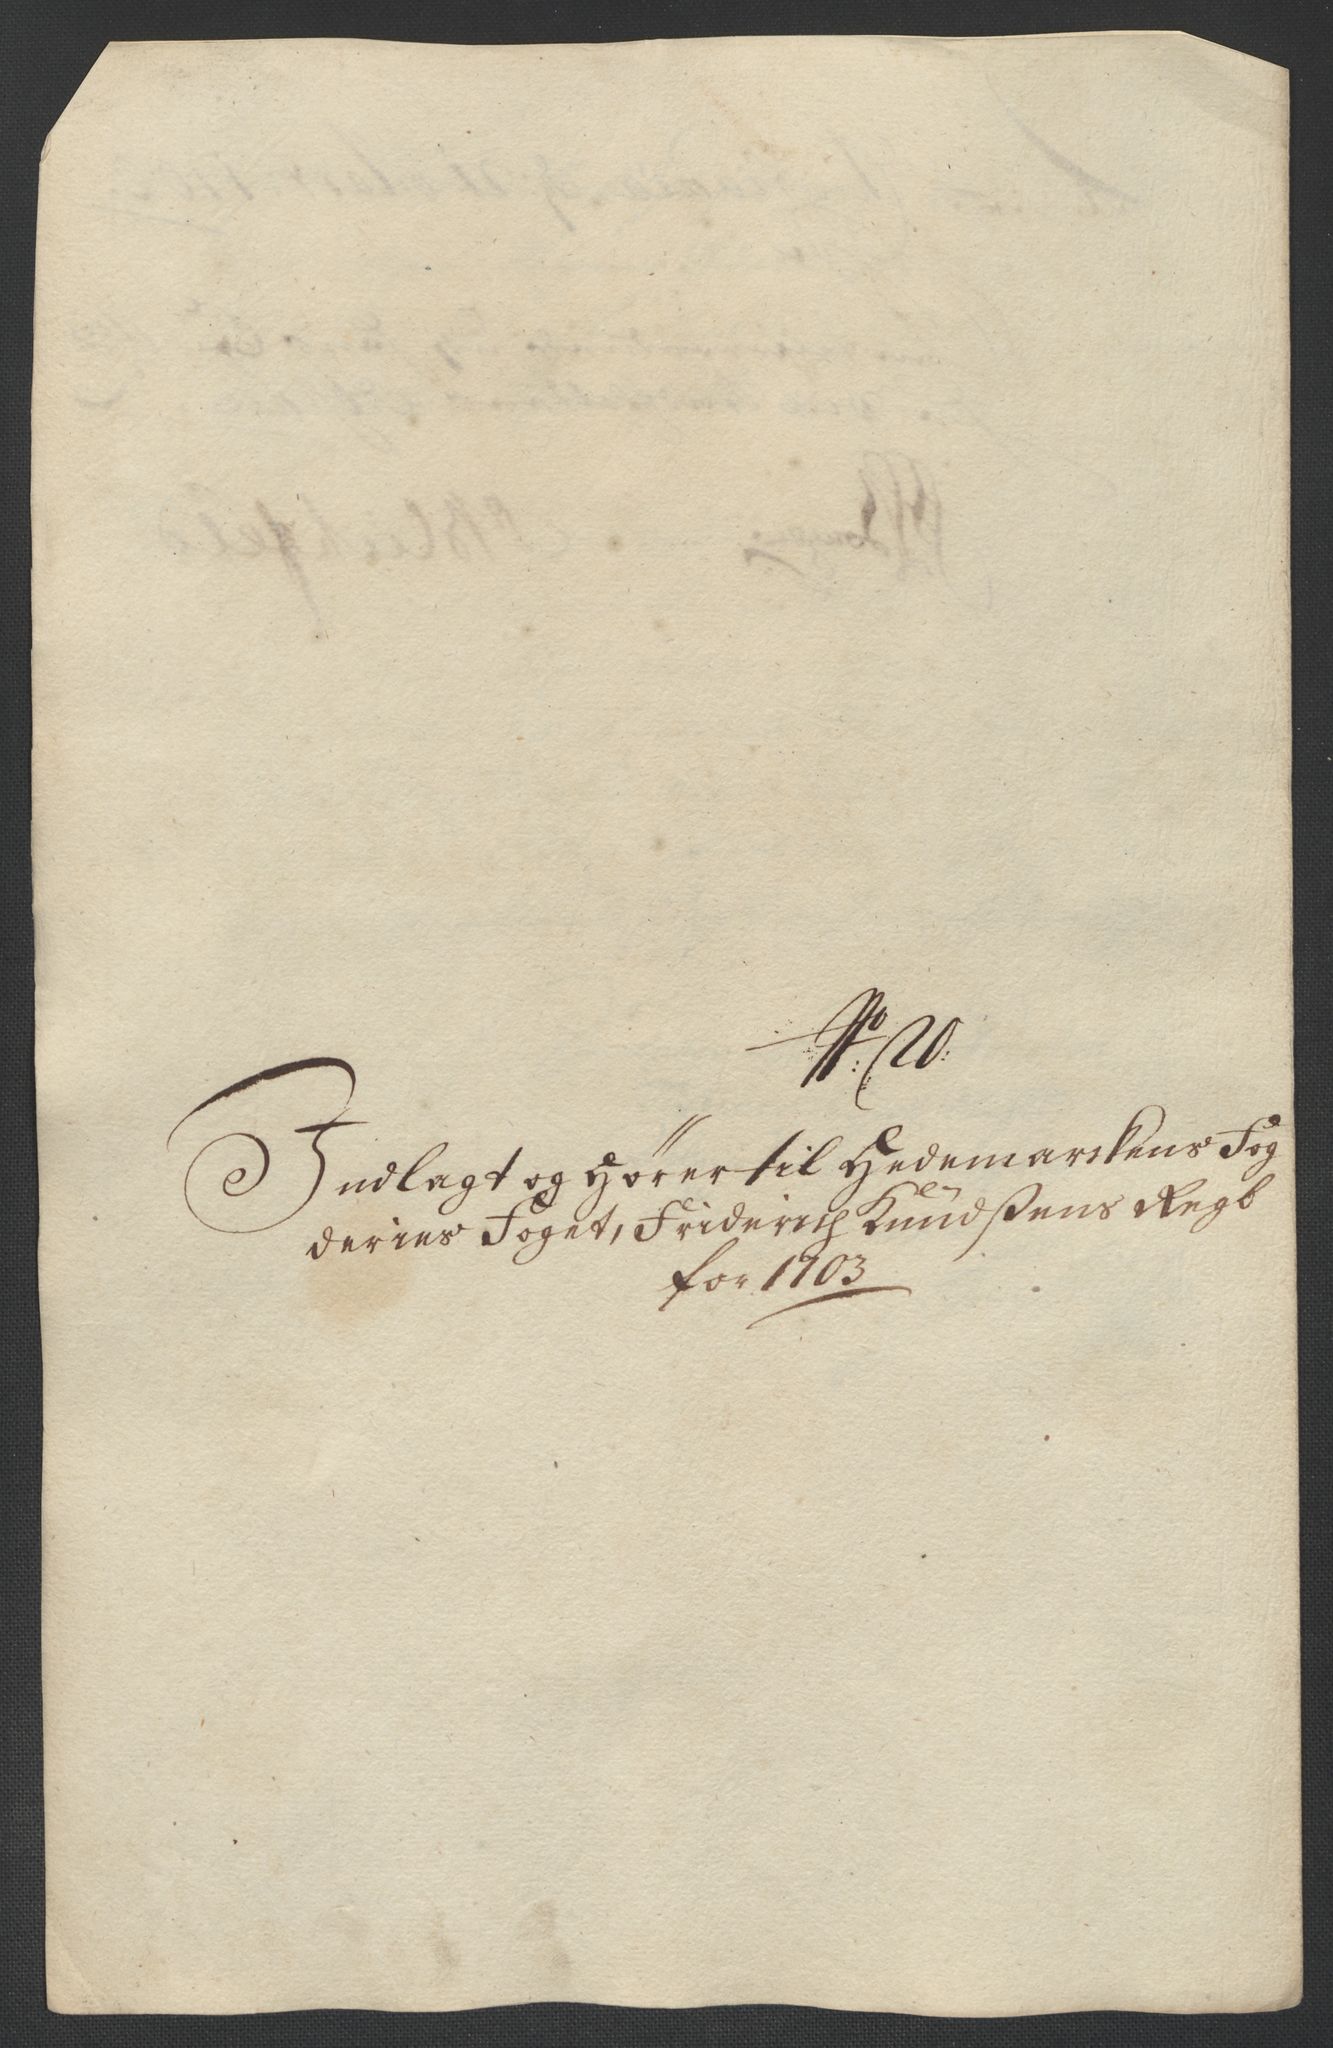 No 20:
Indlagt og Hører til Hedemarckens Fog
deries Foget, Friderich Knudßens Regb
for 1703